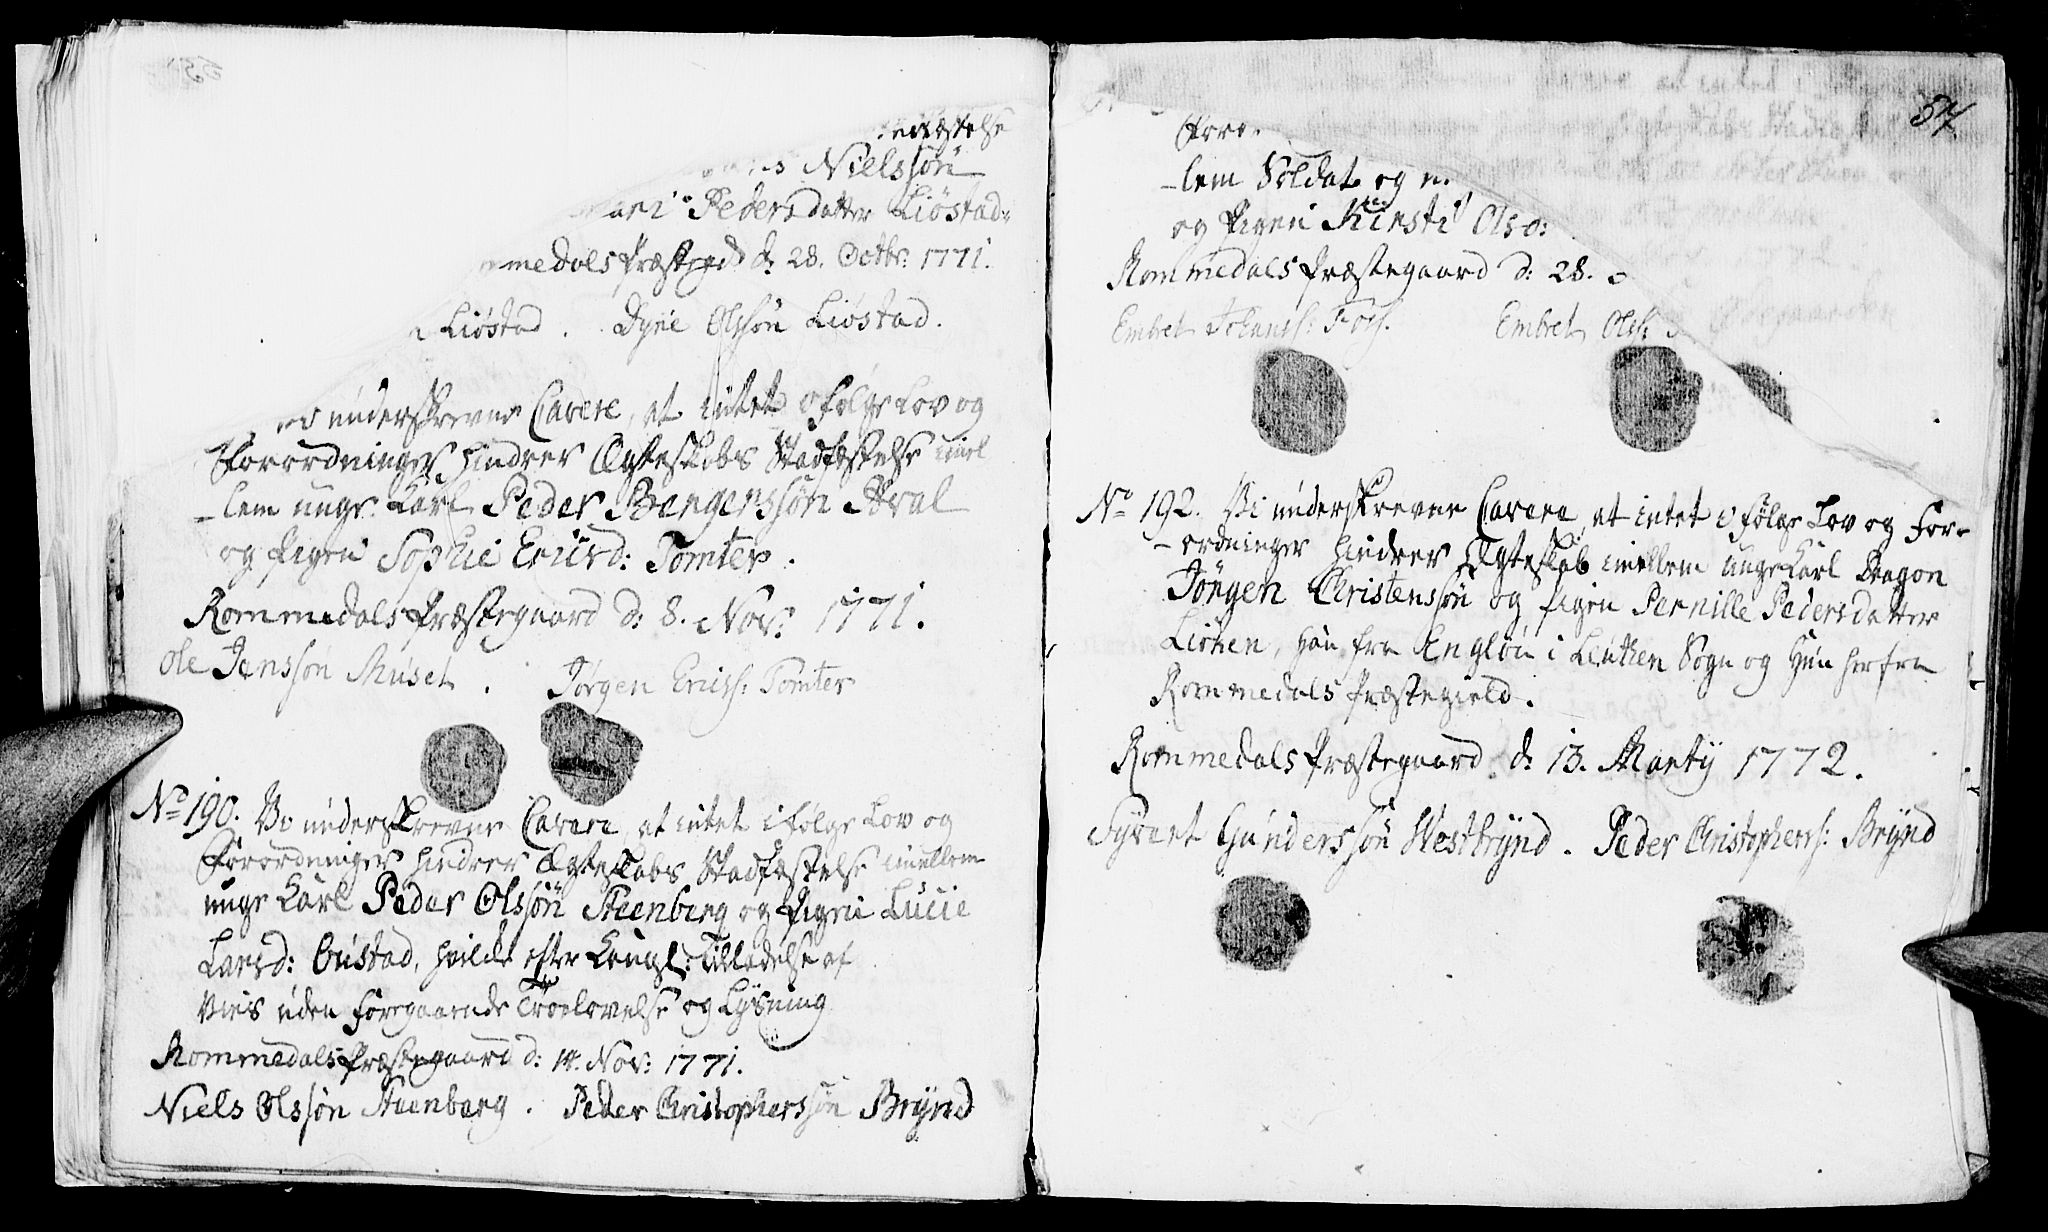 Nielssøn
Pedersdatter Liøstad
Præstegd d: 28. Octbr: 1771.
Liøstad. Dyne Olssøn Liøstad.
underskrevne Cavere, at intet i følge Lov og
Forordninger hindrer Ægteskabs Stadfæstelse imel
-lem unge Karl Peder Bengerssøn Aral
og Pigen Sophie Ericsd: Tomter.
Rommedals Præstegaard d: 8. Nov: 1771.
Ole Janssøn Muset. Jørgen Ericss: Tomter
No 190. Vi underskrevne Cavere, at intet i følge Lov og
Forordninger hindrer Ægteskabs Stadfæstelse imellem
unge Karl Peder Olssøn Steenberg og Pigen Lucie
Larsd: Oustad, hvilke efter Kongl: Tilladelse af
Vies uden foregaaende Troelovelse og Lysning
Rommedals Præstegaard d: 14. Nov: 1771.
Niels Olssøn Steenberg. Peder Christopherssøn Brynd
57
-lem Soldat og
og Pigen Kirsti Olsd:
Rommedals Præstegaard d: 28.
Embret Johanss: Foss. Embret Olss: Ødegaarden
No 192. Vi underskrevne Cavere, at intet i følge Lov og For-
-ordninger hindrer Ægteskab imellem unge Karl Dragon
Jørgen Christenssøn og Pigen Pernille Pedersdatter
Liøhen, han fra Engløn i Leuthen Sogn og hun herfra
Rommedals Præstegield.
Rommedals Præstegaard d: 13. Martij 1772.
Syvert Gunderssøn Westbrynd. Peder Christopherss: Brynd